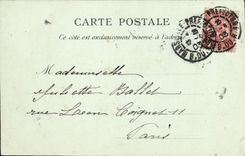 CARTE POSTALE
Ce côté est exclusivement réservé à l'adresse
Mademoiselle
Juliette Ballet
rue Léon Cogniet 11
Paris